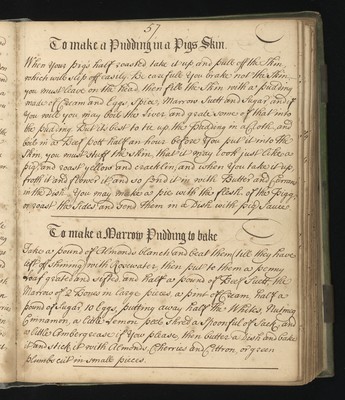 57
To make a Pudding in a Pigs Skin.
When your pig's half roasted take it up and pull off the Skin
which will slip off easily. Be carefull you brake not the Skin
you must leave on the head, then fill the Skin with a pudding
made of Cream and Eggs, Spice, Marrow Suett and Sugar, and if
you will you may boil the Liver and grate some of that into
the pudding. But its best to tie up the Pudding in a Cloth, and
boil in a Beef pot half an hour before you put it into the
Skin you must stuff the Skin, that it may look just like a
pig, and roast yellow and cracklin, and when you take it up
froth it and flower it, and so send it up with Butter and
in the Dish. You may make a pie with the flesh of the Pigg
or roast the Sides and send them in a Dish with pig Sauce
To make a Marrow Pudding to bake
Take a pound of Almonds blanch and beat them till they have
left off shining with Rosewater, then put to them a penny
loaf grated and sifted, and half a pound of Beef Suett, the
Marrow of 2 Bones in large pieces, a pint of Cream, half a
pound of Sugar 10 Eggs, putting away half the Whites, Nutmeg
Cinnamon, a little Lemon peel Shred a Spoonful of Sack, and
a little Ambergrease if you please, then butter a Dish and bake
it and stick it with Almonds, Cherries and Citron, or green
plumbs cut in small pieces.